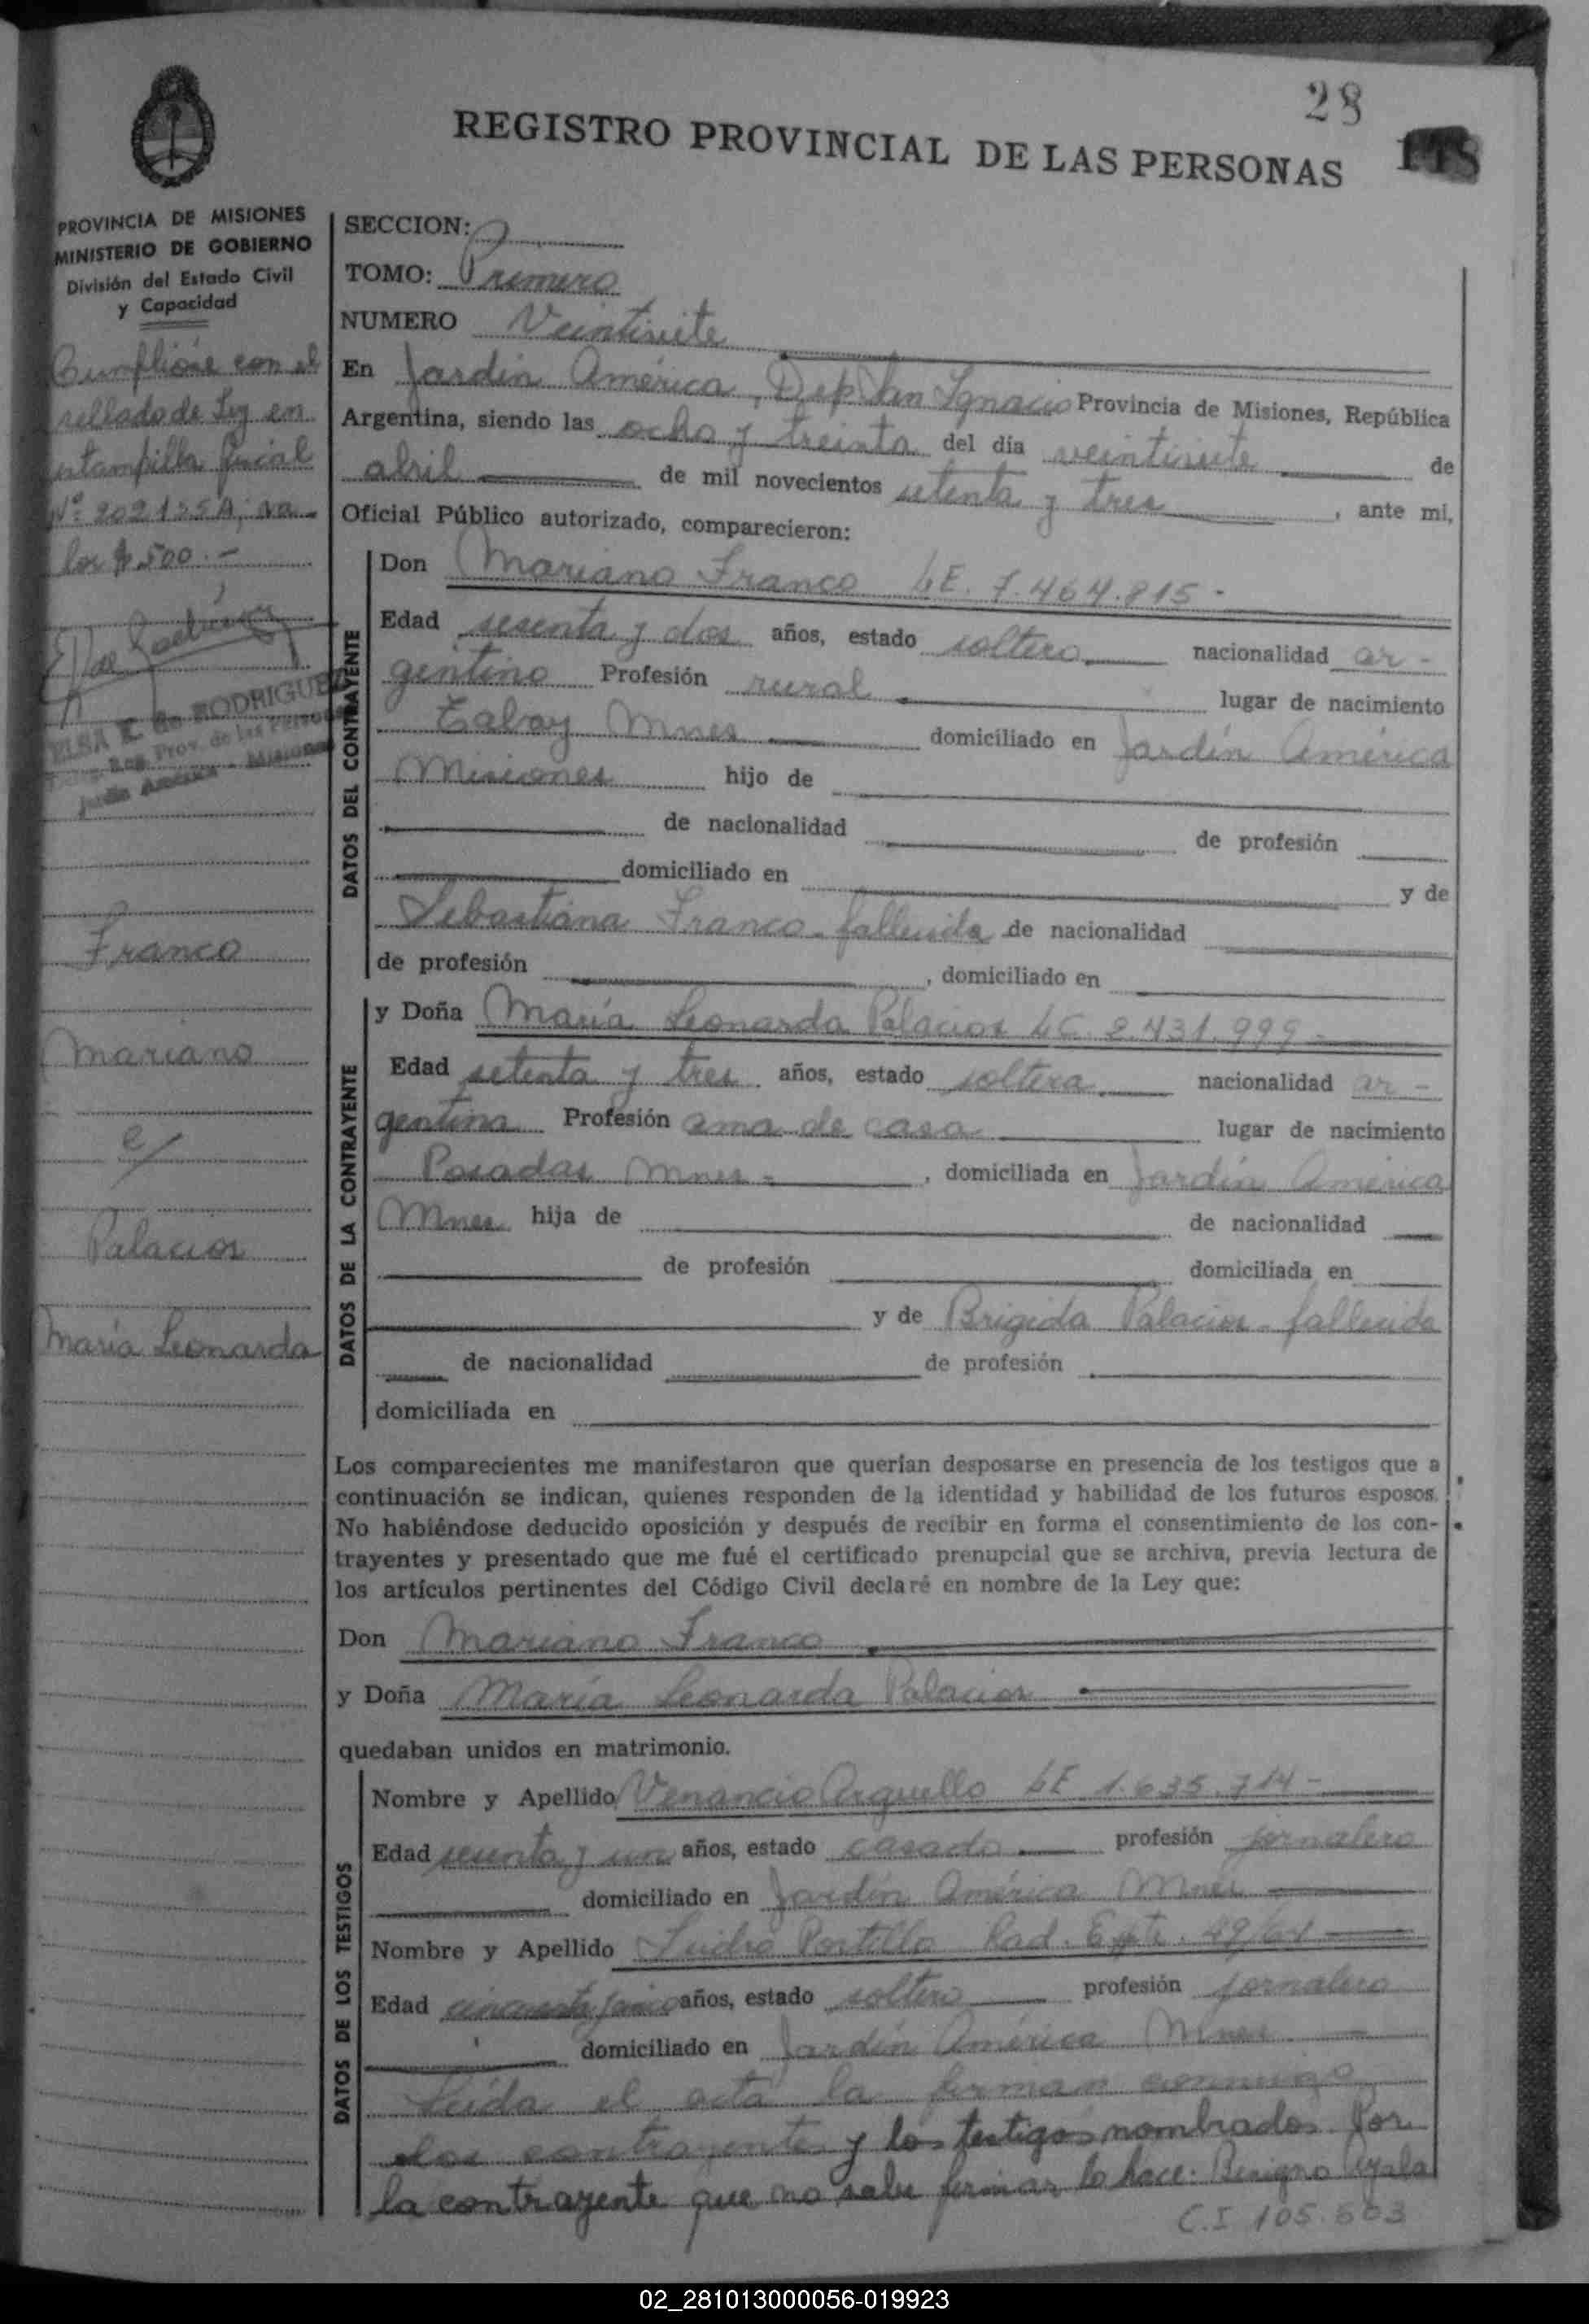 28
REGISTRO PROVINCIAL DE LAS PERSONAS 118
PROVINCIA DE MISIONES
MINISTERIO DE GOBIERNO
División del Estado Civil
y Capacidad
Cumplióse con el
sellado de Ley en
estampilla fiscal
Nº 202155A, va-
lor $ 500.-
ELSA E. de RODRIGUEZ
Reg. Prov. de las Personas
Jardín América - Misiones
Franco
Mariano
c/
Palacios
María Leonarda
SECCION:
TOMO: Primero
NUMERO Veintisiete
En Jardín América, Dep. San Ignacio Provincia de Misiones, República
Argentina, siendo las ocho y treinta del día veintisiete de
abril de mil novecientos setenta y tres, ante mi,
Oficial Público autorizado, comparecieron:
DATOS DEL CONTRAYENTE
Don Mariano Franco LE. 7.464.815-
Edad sesenta y dos años, estado soltero nacionalidad ar-
gentino Profesión rural lugar de nacimiento
Tabay Mnes domiciliado en Jardín América
Misiones hijo de
de nacionalidad de profesión
domiciliado en y de
Sebastiana Franco-fallecida de nacionalidad
de profesión , domiciliado en
DATOS DE LA CONTRAYENTE
y Doña María Leonarda Palacios LC. 2.431.999-
Edad setenta y tres años, estado soltera nacionalidad ar-
gentina Profesión ama de casa lugar de nacimiento
Posadas Mnes- , domiciliada en Jardín América
Mnes hija de de nacionalidad
de profesión domiciliada en
y de Brigida Palacios-fallecida
de nacionalidad de profesión
domiciliada en
Los comparecientes me manifestaron que querían desposarse en presencia de los testigos que a
continuación se indican, quienes responden de la identidad y habilidad de los futuros esposos.
No habiéndose deducido oposición y después de recibir en forma el consentimiento de los con-
trayentes y presentado que me fué el certificado prenupcial que se archiva, previa lectura de
los artículos pertinentes del Código Civil declaré en nombre de la Ley que:
Don Mariano Franco
y Doña María Leonarda Palacios
quedaban unidos en matrimonio.
DATOS DE LOS TESTIGOS
Nombre y Apellido Venancio Arguello LE 1.635.714-
Edad sesenta y un años, estado casado profesión jornalero
domiciliado en Jardín América Mnes
Nombre y Apellido Portillo Rad. Expte. 49/64
Edad cincuenta y cinco años, estado soltero profesión jornalero
domiciliado en Jardín América Mnes
Leída el acta la firman conmigo
los contrayentes y los testigos nombrados. Por
la contrayente que no sabe firmar lo hace: Benigno Ayala
C.I 105.503
02_281013000056-019923